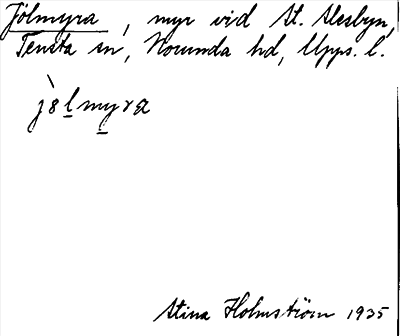 Jölmyra, myr vid St. Ålesbyn,
Tensta sn, Norunda hd, Upps. l.
j`8lmyra
Stina Holmström 1935